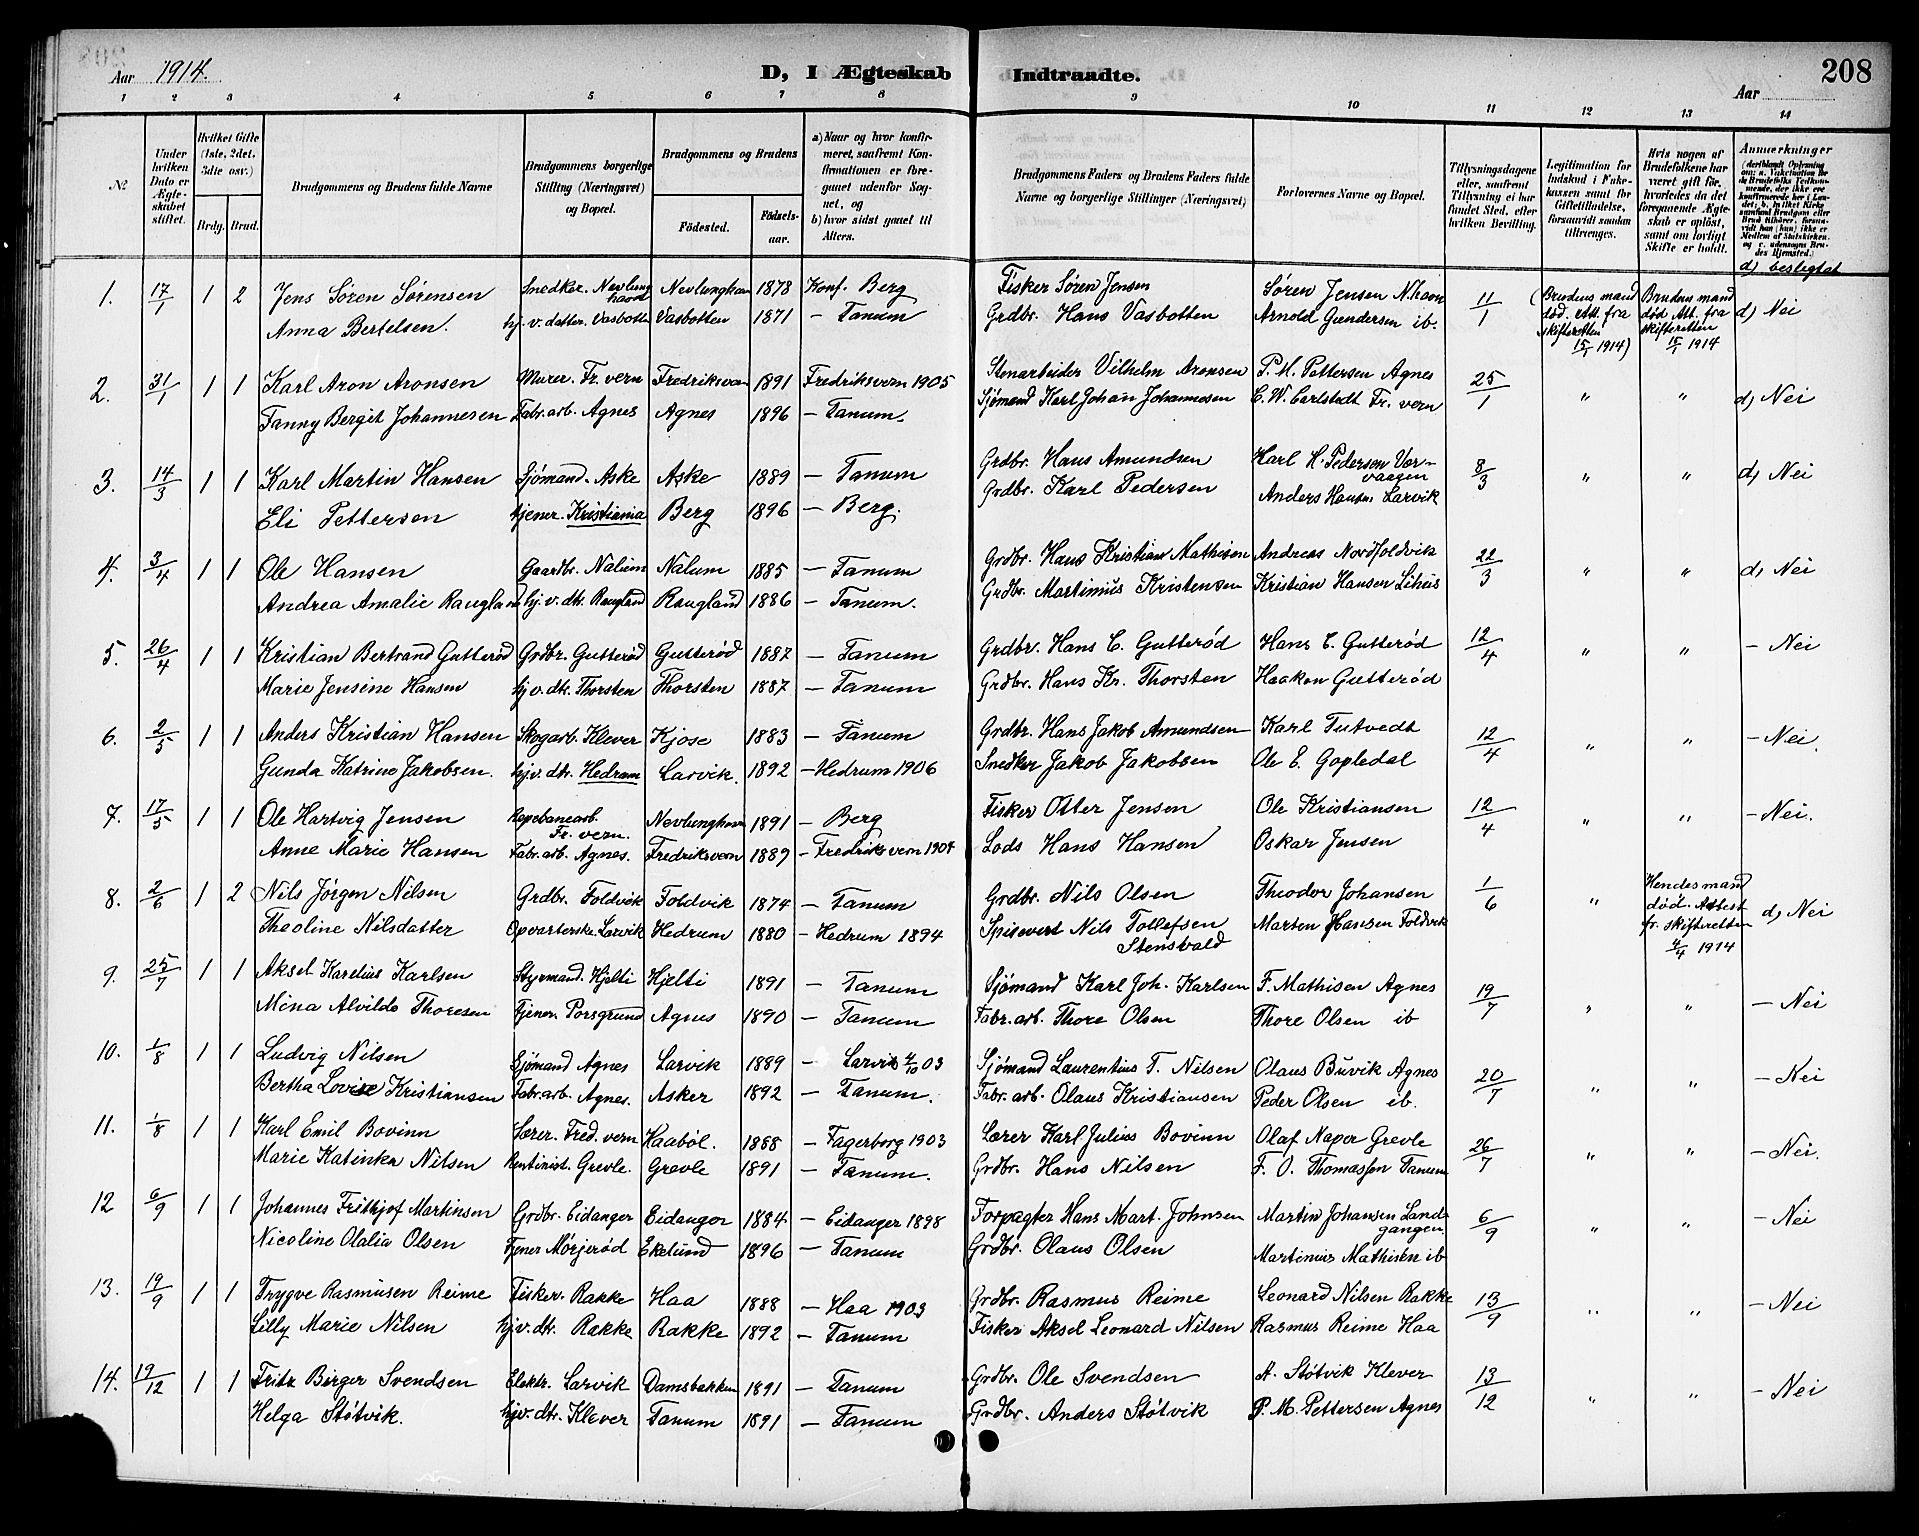 Aar 1914.
D, I Ægteskab Indtraadte.
208
Aar
1 2 3 4 5 6 7 8 9 10 11 12 13 14
№
Under hvilken Dato er Ægteskabet stiftet.
Hvilket Gifte (1ste, 2det, 3die osv.)
Brdg. Brud.
Brudgommens og Brudens fulde Navne
Brudgommens borgerlige Stilling (Næringsvei) og Bopæl.
Brudgommens og Brudens
Fødested. Fødselsaar.
a) Naar og hvor konfirmeret, saafremt Konfirmationen er foregaaet udenfor Sognet, og
b) hvor sidst gaaet til Alters.
Brudgommens Faders og Brudens Faders fulde Navne og borgerlige Stillinger (Næringsvei)
Forlovernes Navne og Bopæl.
Tillysningsdagene eller, saafremt Tillysning ei har fundet Sted, efter hvilken Bevilling.
Legitimation for Indskud i Enkekassen samt for Giftetilladelse, forsaavidt saadan tiltrænges.
Hvis nogen af Brudefolkene har været gift før, hvorledes da det foregaaende Ægteskab er opløst, samt om lovligt Skifte er holdt.
Anmærkninger
d) beslegtet
1. 17/1 1 2 Jens Søren Sørensen Snedker. Nevlunghavn Nevlunghavn 1878 Konf. Berg Fisker Søren Jensen Søren Jensen N.havn 11/1 (Brudens mand død. Att. fra skifteretten 15/1 1914) Brudens mand død Att. fra skifteretten 15/1 1914 d) Nei
Anna Bertelsen. hj. v. datter. Vasbotten Vasbotten 1871 – Tanum Grdbr. Hans Vasbotten Arnold Gundersen ib.
2. 31/1 1 1 Karl Aron Aronsen Murer. Fr. vern Fredriksvern 1891 Fredriksvern 1905 Stenarbeider Vilhelm Aronsen P. M. Pettersen Agnes 25/1 " " d) Nei
Fanny Bergit Johannesen Fabr. arb. Agnes Agnes 1896 – Tanum. Sjømand Karl Johan Johannesen C. W. Carlstedt Fr. vern
3. 14/3 1 1 Karl Martin Hansen Sjømand. Aske Aske 1889 – Tanum Grdbr. Hans Amundsen Karl H. Pedersen Vorvaagen 8/3 " " d) Nei
Eli Pettersen tjener. Kristiania Berg 1896 – Berg. Grdbr. Karl Pedersen Anders Hansen Larvik
4. 3/4 1 1 Ole Hansen Gaardbr. Nalum Nalum 1885 – Tanum Grdbr. Hans Kristian Mathisen Andreas Nordfoldvik 22/3 " " d) Nei
Andrea Amalie Raugland hj. v. dtr. Raugland Raugland 1886 – Tanum. Grdbr. Martinius Kristensen Kristian Hansen Lihus
5. 26/4 1 1 Kristian Bertrand Gutterød Grdbr. Gutterød Gutterød 1887 – Tanum Grdbr. Hans C. Gutterød Hans C. Gutterød 12/4 " " – Nei
Marie Jensine Hansen hj. v. dtr. Thorsten Thorsten 1887 – Tanum Grdbr. Hans Kr. Thorsten Haakon Gutterød
6. 2/5 1 1 Anders Kristian Hansen Skogarb. Klever Kjose 1883 – Tanum Grdbr. Hans Jakob Amundsen Karl Tutvedt 12/4 " " – Nei.
Gunda Katrine Jakobsen. hj. v. dtr. Hedrum Larvik. 1892 – Hedrum 1906 Snedker Jakob Jakobsen Ole E. Gopledal
7. 17/5 1 1 Ole Hartvig Jensen Repebanearb. Fr. vern. Nevlunghavn 1891 – Berg Fisker Otter Jensen Ole Kristiansen 12/4 " " – Nei.
Anne Marie Hansen Fabr. arb. Agnes. Fredriksvern 1889 – Fredriksvern 1904 Lods Hans Hansen Oskar Jensen
8. 2/6 1 2 Nils Jørgen Nilsen Grdbr. Foldvik Foldvik 1874 – Tanum Grdbr. Nils Olsen Theodor Johansen 1/6 " Hendes mand død. Attest fr. skifteretten 4/4 1914 d) Nei
Theoline Nilsdatter Opvarterske. Larvik Hedrum 1880 – Hedrum 1894 Spisevert Nils Tollefsen Stensvald Marten Hansen Foldvik
9. 25/7 1 1 Aksel Karelius Karlsen Styrmand. Hjelti Hjelti 1891 – Tanum Sjømand Karl Joh. Karlsen F. Mathisen Agnes 19/7 " " – Nei
Mina Alvilde Thoresen Tjener. Porsgrund Agnes 1890 – Tanum Fabr. arb. Thore Olsen Thore Olsen ib
10. 1/8 1 1 Ludvig Nilsen Sjømand Agnes Larvik 1889 – Larvik 4/10 03 Sjømand Laurentius T. Nilsen Olaus Buvik Agnes 20/7 " " – Nei
Bertha Lovise Kristiansen Fabr. arb. Agnes. Asker 1892 – Tanum. Fabr. arb. Olaus Kristiansen Peder Olsen ib.
11. 1/8 1 1 Karl Emil Bovinn Lærer. Fred. vern Haabøl. 1888 – Fagerborg 1903 Lærer Karl Julius Bovinn Olaf Naper Grevle 26/7 " " – Nei.
Marie Katinka Nilsen Kontorist. Grevle. Grevle 1891 – Tanum. Grdbr. Hans Nilsen F. O. Thomassen Tanum
12 6/9 1 1 Johannes Frithjof Martinsen Grdbr. Eidanger Eidanger 1884 – Eidanger 1898 Forpagter Hans Mart. Johnsen Martin Johansen Landgangen. 6/9 " " – Nei
Nicoline Olalia Olsen Tjener Mørjerød Ekelund 1896 – Tanum Grdbr. Olaus Olsen Martinius Mathisen ib
13. 19/9 1 1 Trygve Rasmusen Reime Fisker. Rakke Haa 1888 – Haa 1903 Grdbr. Rasmus Reime Leonard Nilsen Rakke 13/9 " " – Nei
Lilly Marie Nilsen hj. v. dtr. Rakke Rakke 1892 – Tanum Fisker Aksel Leonard Nilsen Rasmus Reime Haa
14. 19/12 1 1 Fritz Birger Svendsen Elektr. Larvik Damsbakken 1891 – Tanum Grdbr. Ole Svendsen A. Støtvik Klever 13/12 " " – Nei
Helga Støtvik. hjv. dtr. Klever Tanum 1891 – Tanum Grdbr. Anders Støtvik P. M. Pettersen Agnes